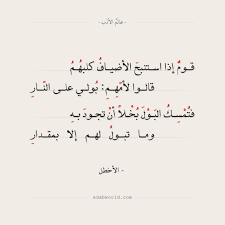 - عالم الأدب -
قومٌ إذا استنبحَ الأضيافُ كلبَهُمُ
قالوا لأمّهِمِ: بُولي على النّارِ
فتُمْسِكُ البَوْلَ بُخْلاً أنْ تجودَ بهِ
وما تبولُ لهم إلا بمقدارِ
- الأخطل -
adabworld.com